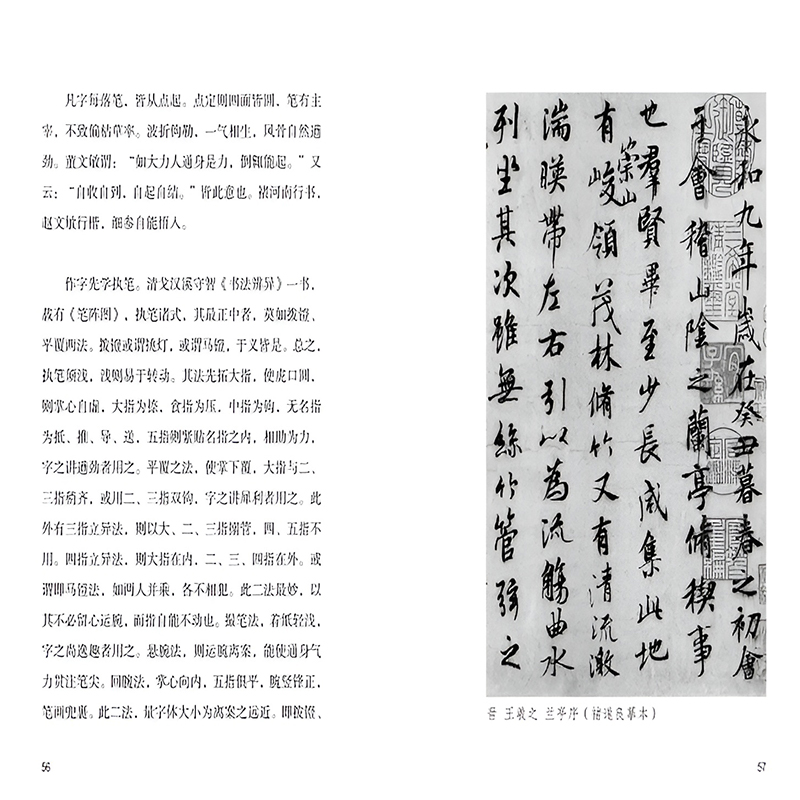 凡字每落笔，皆从点起。点定则四面皆圆，笔有主
宰，不致偏枯草率。波折钩勒，一气相生，风骨自然遒
劲。董文敏谓：“如大力人通身是力，倒辄能起。”又
云：“自收自到，自起自结。”皆此意也。褚河南行书，
赵文敏行楷，细参自能悟入。
作字先学执笔。清戈汉溪守智《书法辨异》一书，
载有《笔阵图》，执笔诸式，其最正中者，莫如拨镫、
平覆两法。拨镫或谓挑灯，或谓马镫，于义皆是。总之，
执笔须浅，浅则易于转动。其法先拓大指，使虎口圆，
则掌心自虚，大指为捺，食指为压，中指为钩，无名指
为抵、推、导、送，五指则紧贴名指之内，相助为力，
字之讲遒劲者用之。平覆之法，使掌下覆，大指与二、
三指药齐，或用二、三指双钩，字之讲犀利者用之。此
外有三指立异法，则以大、二、三指搦管，四、五指不
用。四指立异法，则大指在内，二、三、四指在外。或
谓即马镫法，如两人并乘，各不相犯。此二法最妙，以
其不必留心运腕，而指自能不动也。撮笔法，着纸轻浅，
字之尚逸趣者用之。悬腕法，则运腕离案，能使通身气
力贯注笔尖。回腕法，掌心向内，五指俱平，腕竖锋正，
笔画兜裹。此二法，量字体大小为离案之远近。即拨镫、
56
永和九年歲在癸丑暮春之初會
于會稽山陰之蘭亭脩禊事
也羣賢畢至少長咸集此地
有崇山峻領茂林脩竹又有清流激
湍暎帶左右引以為流觴曲水
列坐其次雖無絲竹管弦之
晋 王羲之 兰亭序（褚遂良摹本）
57